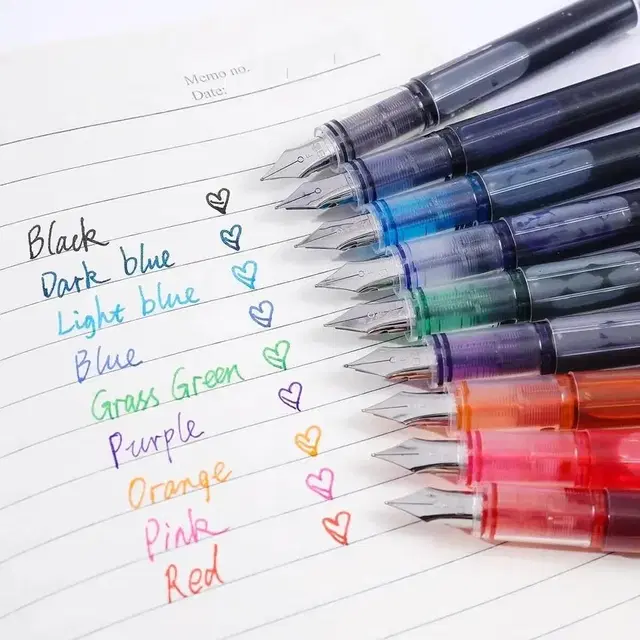 Memo no.
Date:
Black
Dark blue
Light blue
Blue
Grass Green
Purple
Orange
Pink
Red